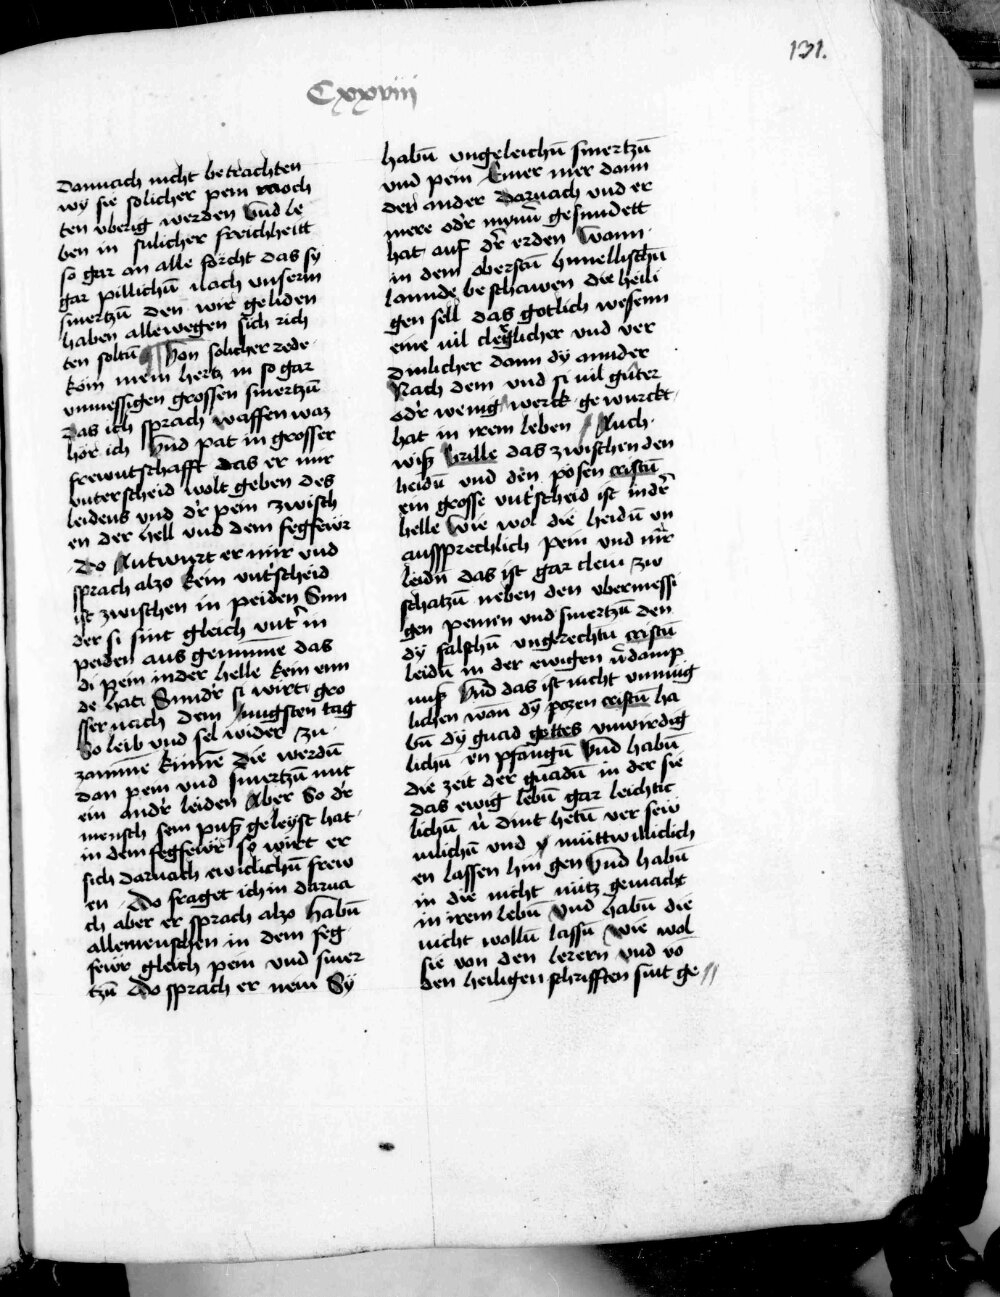 131.
Cxxviii
Darnach nicht betrachten
wy sie solicher pein moch
ten vberig werden Vnd le
ben in sulicher freichheitt
so gar an alle forcht das sy
gar pillichn̄ nach vnserm
smertzn̄ den wir geliden
haben allewegen sich rich
ten soltn̄ ¶ Von solicher rede
kom mein hertz in so gar
vnmessigen grossen smertzn̄
das ich sprach waffen waz
hor ich Vnd pat in grosser
frewntschafft das er mir
vnterscheid wolt geben des
leidens vnd dr pein zwisch
en der hell vnd dem fegfewr
Do Antwurt er mir vnd
sprach alzo kein vntscheid
ist zwischen in peiden Sun
der si sint gleich vnt in
peiden aus genūmē das
di pein inder helle kein enn
de hat Sundr si wirt gro
sser nach dem Jungsten tag
So leib vnd sel wider zu
zammē kūmē Die werdn̄
dan pein vnd smertzn̄ mit
ein andr leiden Aber So dr
mensch sein puß geleyst hat
in dem fegfewr so wirt er
sich darnach ewiclichn̄ frew
en Do fraget ich in darna
ch aber er sprach alzo Habn̄
alle menschen in dem feg
fewr gleich pein vnd smer
tzn̄ Do sprach er nein Sy
habn̄ vngeleichn̄ smertzn̄
vnd pein Einer mer dann
der ander Darnach vnd er
mere odr mynn̄ gesundett
hat auf dr erden Wann
in dem oberstn̄ himellischn̄
lannde beschawen die heili
gen sell das gotlich wesenn
eine vil clerlicher vnd ver
dinlicher dann dy annder
Nach dem vnd si vil guter
odr wenig werck gewurckt
hat in irem leben Auch
wiß Brille das zwischen den
heidn̄ vnd den posen cristn̄
ein grosse vntscheid ist indr
helle Wie wol die heidn̄ vn
aussprechlich pein vnd mr̄
leidn̄ das ist gar clein zw
schatzn̄ neben den vbermessi
gen peinen vnd smertzn̄ den
dy falschn̄ vngerechtn̄ cristn̄
leidn̄ in der ewigen v̄damp
nuß Vnd das ist nicht vnmug
lichen wan̄ dy pozen cristn̄ ha
bn̄ dy gnad gottes vnwirdig
lichn̄ en pfangn̄ Vnd habn̄
die zeit der gnadn̄ in der sie
das ewig lebn̄ gar leichtic
lichn̄ v dint hetn̄ ver sew
mlichn̄ vnd müttwilliclich
en lassen hin gen Vnd habn̄
in die nicht nütz gemacht
in irem lebn̄ Vnd habn̄ die
nicht wolln̄ lassn̄ Wie wol
sie von den lerern vnd vō
den heiligen schrifften sint ge